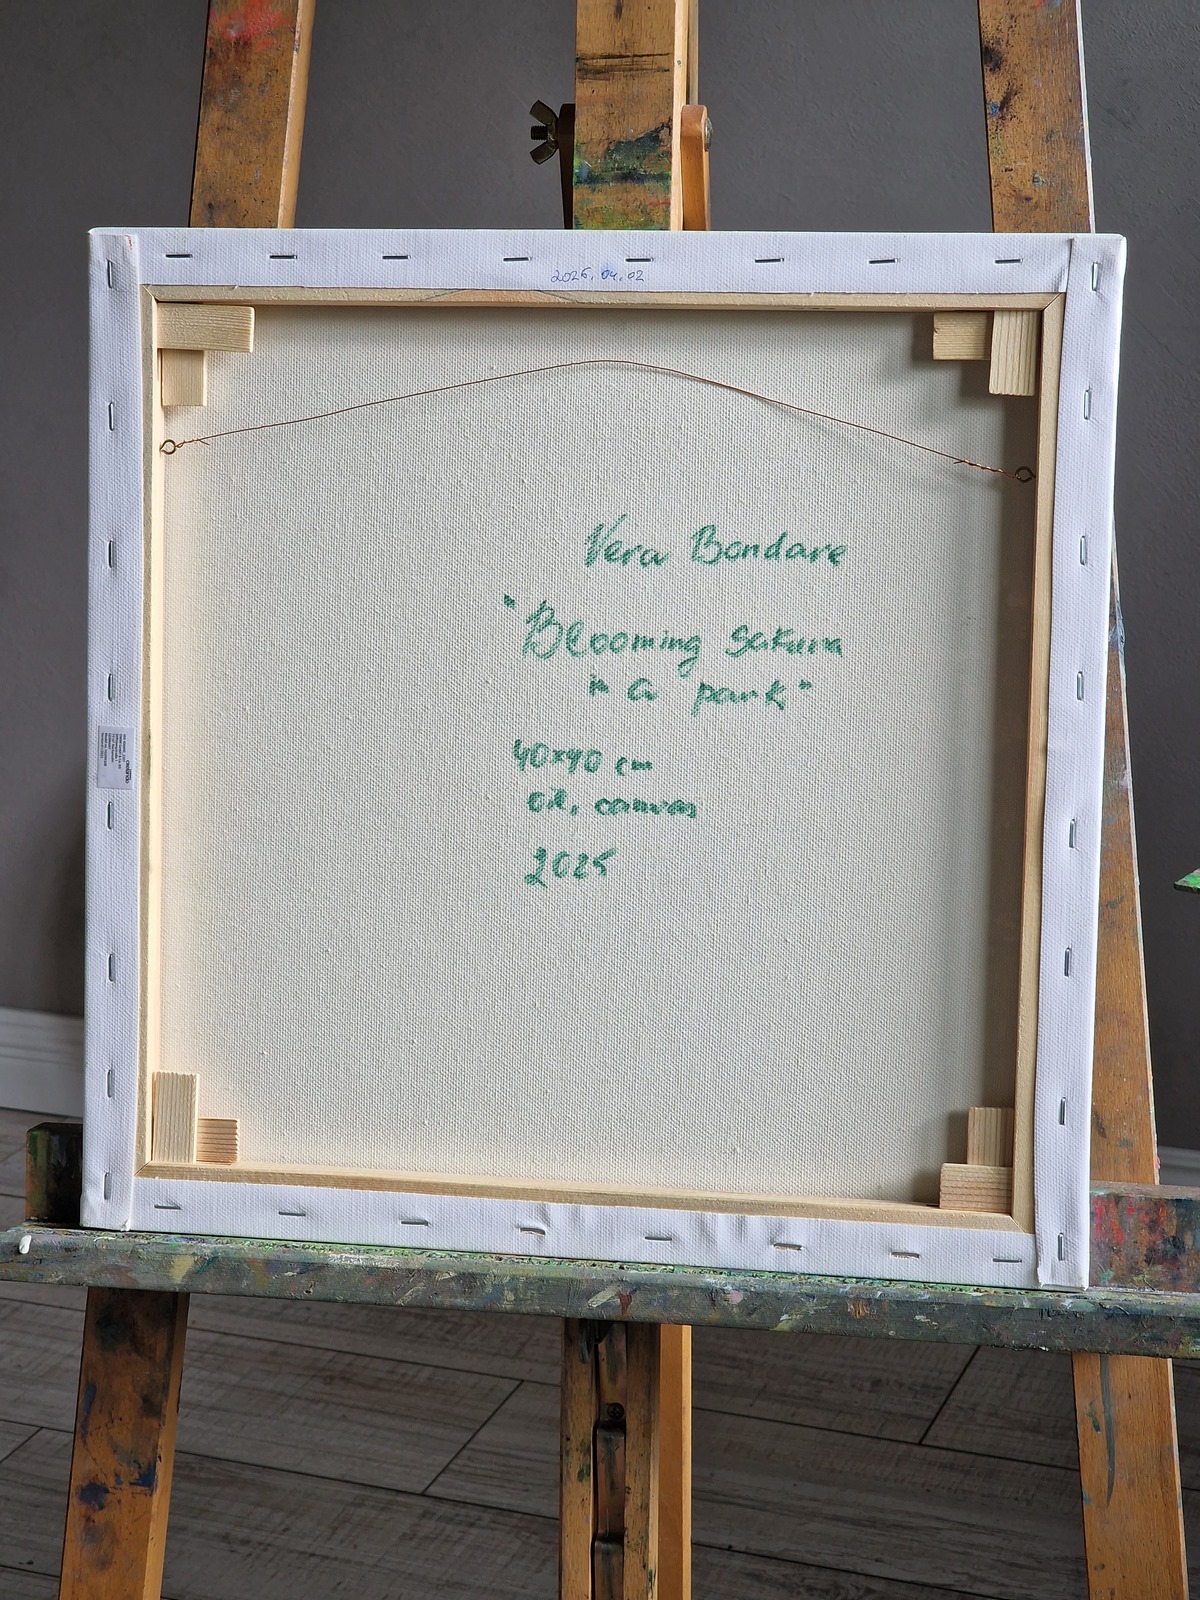 2025.04.02
Vera Bondare
"Blooming Sakura
in a park"
40x40 cm
oil, canvas
2025